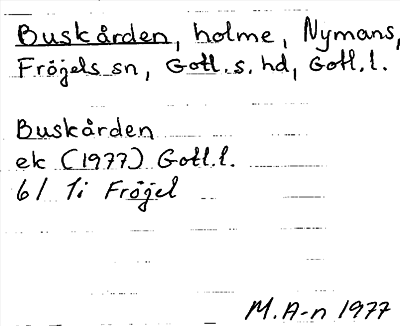 Buskården, holme, Nymans,
Fröjels sn, Gotl. s. hd, Gotl. l.
Buskården
ek (1977) Gotl. l.
6/ 1i Fröjel
M. A-n 1977